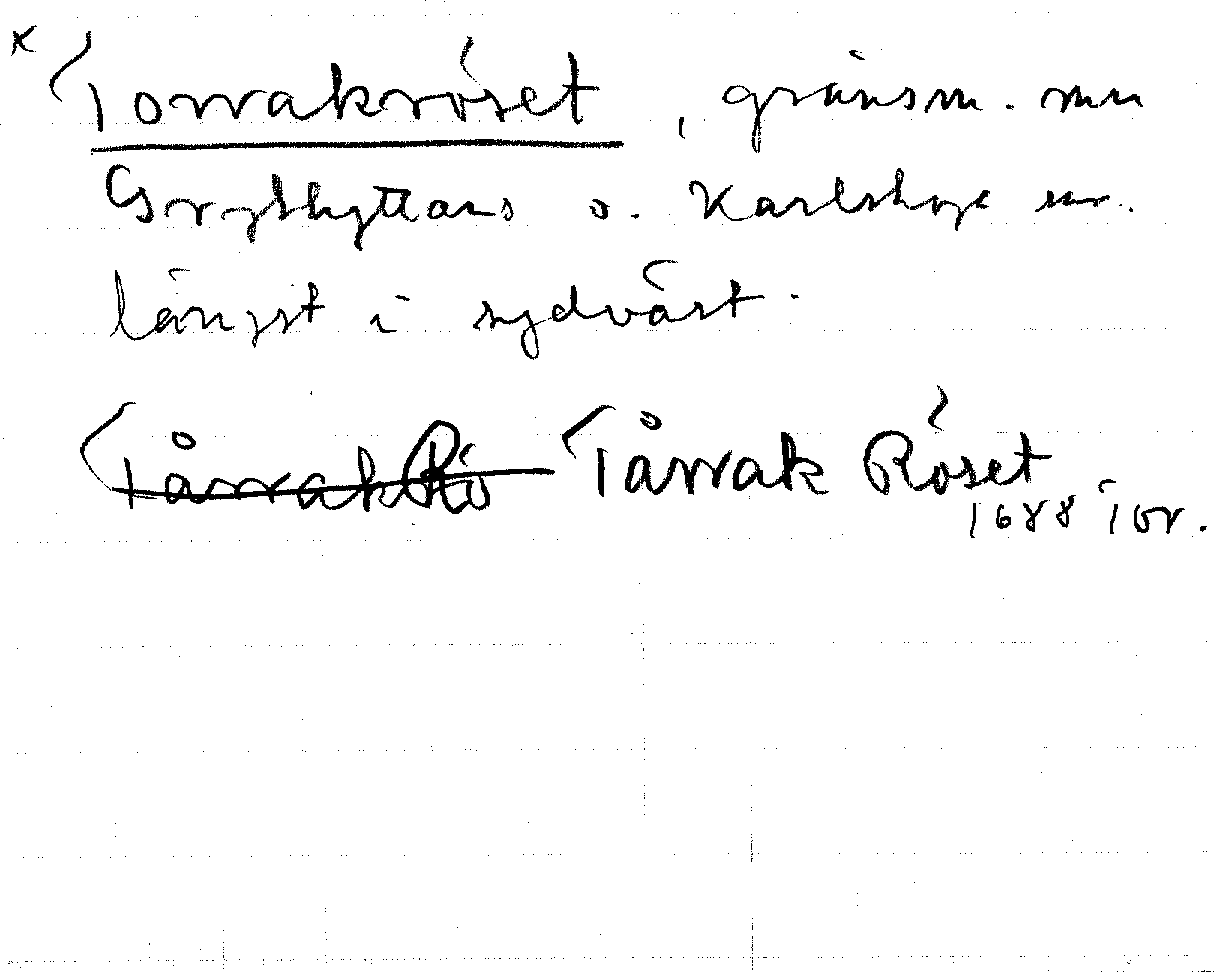 x Torrakröset, gränsm. mn
Grythyttans o. Karlskoga snr.
längst i sydväst.
TårrakRö Tårrak Röset
1688 Tor.